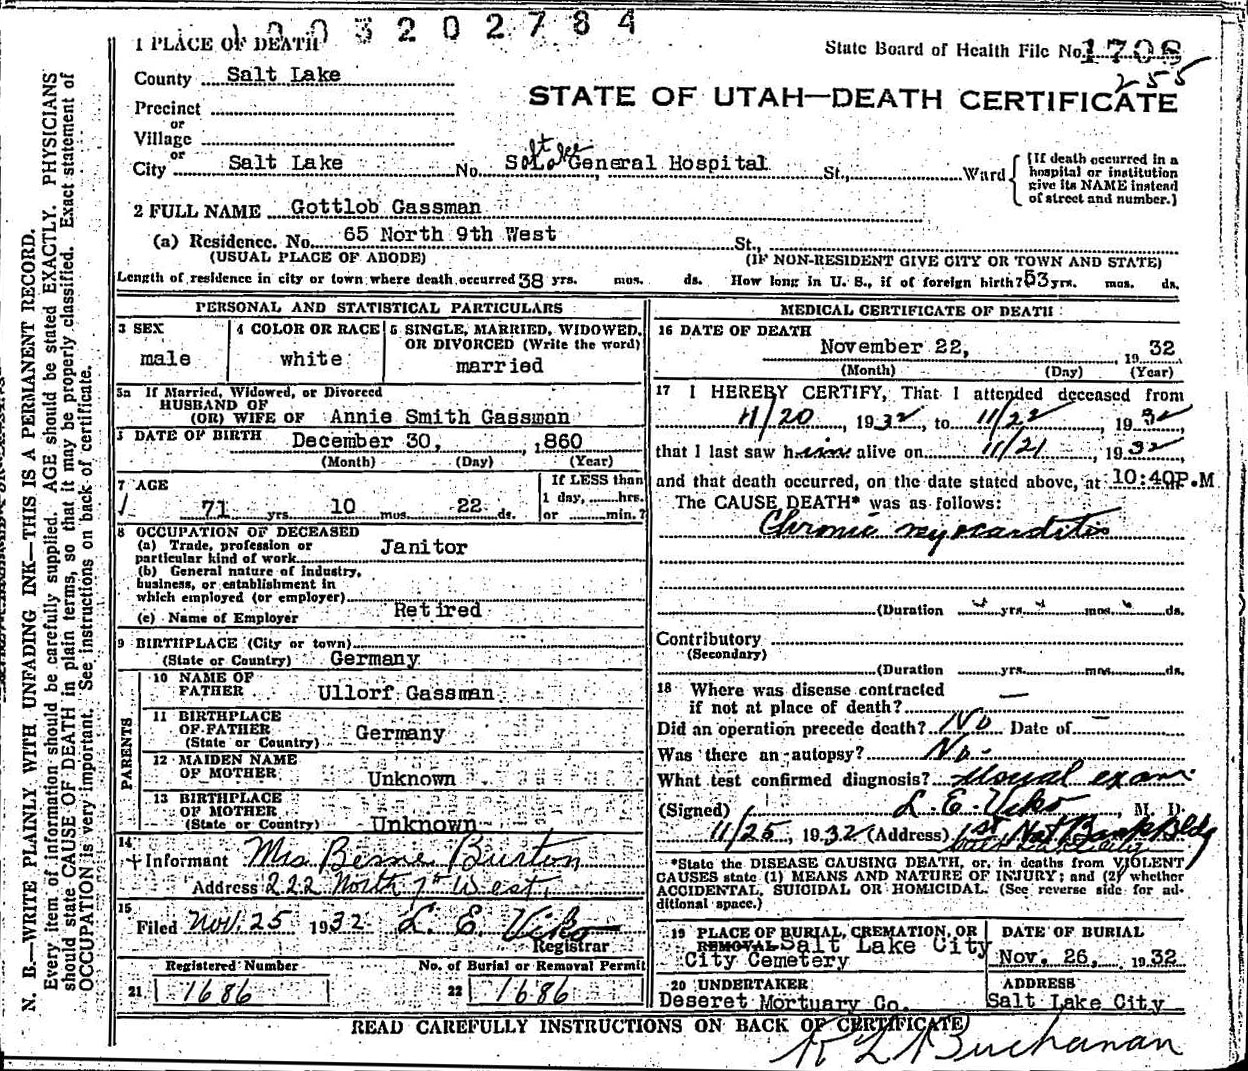 003202784
1 PLACE OF DEATH
State Board of Health File No. 1708
255
County Salt Lake
STATE OF UTAH—DEATH CERTIFICATE
Precinct
or
Village
or
City Salt Lake No. Salt Lake General Hospital St., Ward
(If death occurred in a hospital or institution give its NAME instead of street and number.)
2 FULL NAME Gottlob Gassman
(a) Residence. No. 65 North 9th West St.,
(USUAL PLACE OF ABODE) (IF NON-RESIDENT GIVE CITY OR TOWN AND STATE)
Length of residence in city or town where death occurred 38 yrs. mos. ds. How long in U. S., if of foreign birth? 53 yrs. mos. ds.
PERSONAL AND STATISTICAL PARTICULARS
3 SEX
male
4 COLOR OR RACE
white
5 SINGLE, MARRIED, WIDOWED,
OR DIVORCED (Write the word)
married
5a If Married, Widowed, or Divorced
HUSBAND OF
(OR) WIFE OF Annie Smith Gassman
DATE OF BIRTH December 30, 1860
(Month) (Day) (Year)
7 AGE
71 yrs. 10 mos. 22 ds.
If LESS than
1 day, hrs.
or min.?
8 OCCUPATION OF DECEASED
(a) Trade, profession or
particular kind of work Janitor
(b) General nature of industry,
business, or establishment in
which employed (or employer)
Retired
(c) Name of Employer
9 BIRTHPLACE (City or town)
(State or Country) Germany
PARENTS
10 NAME OF
FATHER Ullorf Gassman
11 BIRTHPLACE
OF FATHER
(State or Country) Germany
12 MAIDEN NAME
OF MOTHER Unknown
13 BIRTHPLACE
OF MOTHER
(State or Country) Unknown
14
Informant Mrs Burton
Address 222 North West
15
Filed Nov. 25 1932 L. E. Viko
Registrar
Registered Number
21 1686
No. of Burial or Removal Permit
22 1686
MEDICAL CERTIFICATE OF DEATH
16 DATE OF DEATH
November 22, 1932
(Month) (Day) (Year)
17 I HEREBY CERTIFY, That I attended deceased from
11/20, 1932, to 11/22, 1932,
that I last saw him alive on 11/21, 1932,
and that death occurred, on the date stated above, at 10:40P.M
The CAUSE DEATH* was as follows:
Chronic myocarditis
(Duration yrs. mos. ds.
Contributory
(Secondary)
(Duration yrs. mos. ds.
18 Where was disease contracted
if not at place of death? —
Did an operation precede death? No Date of —
Was there an autopsy? No.
What test confirmed diagnosis? Usual exam
(Signed) L. E. Viko, M. D.
11/25, 1932 (Address) 1st Nat Bank Bldg
*State the DISEASE CAUSING DEATH, or, in deaths from VIOLENT
CAUSES state (1) MEANS AND NATURE OF INJURY; and (2) whether
ACCIDENTAL, SUICIDAL OR HOMICIDAL. (See reverse side for ad-
ditional space.)
19 PLACE OF BURIAL, CREMATION, OR
REMOVAL Salt Lake City
City Cemetery
DATE OF BURIAL
Nov. 26, 1932
20 UNDERTAKER
Deseret Mortuary Co.
ADDRESS
Salt Lake City
READ CAREFULLY INSTRUCTIONS ON BACK OF CERTIFICATE
Buchanan
N. B.—WRITE PLAINLY WITH UNFADING INK—THIS IS A PERMANENT RECORD.
Every item of information should be carefully supplied. AGE should be stated EXACTLY. PHYSICIANS
should state CAUSE OF DEATH in plain terms, so that it may be properly classified. Exact statement of
OCCUPATION is very important. See instructions on back of certificate.